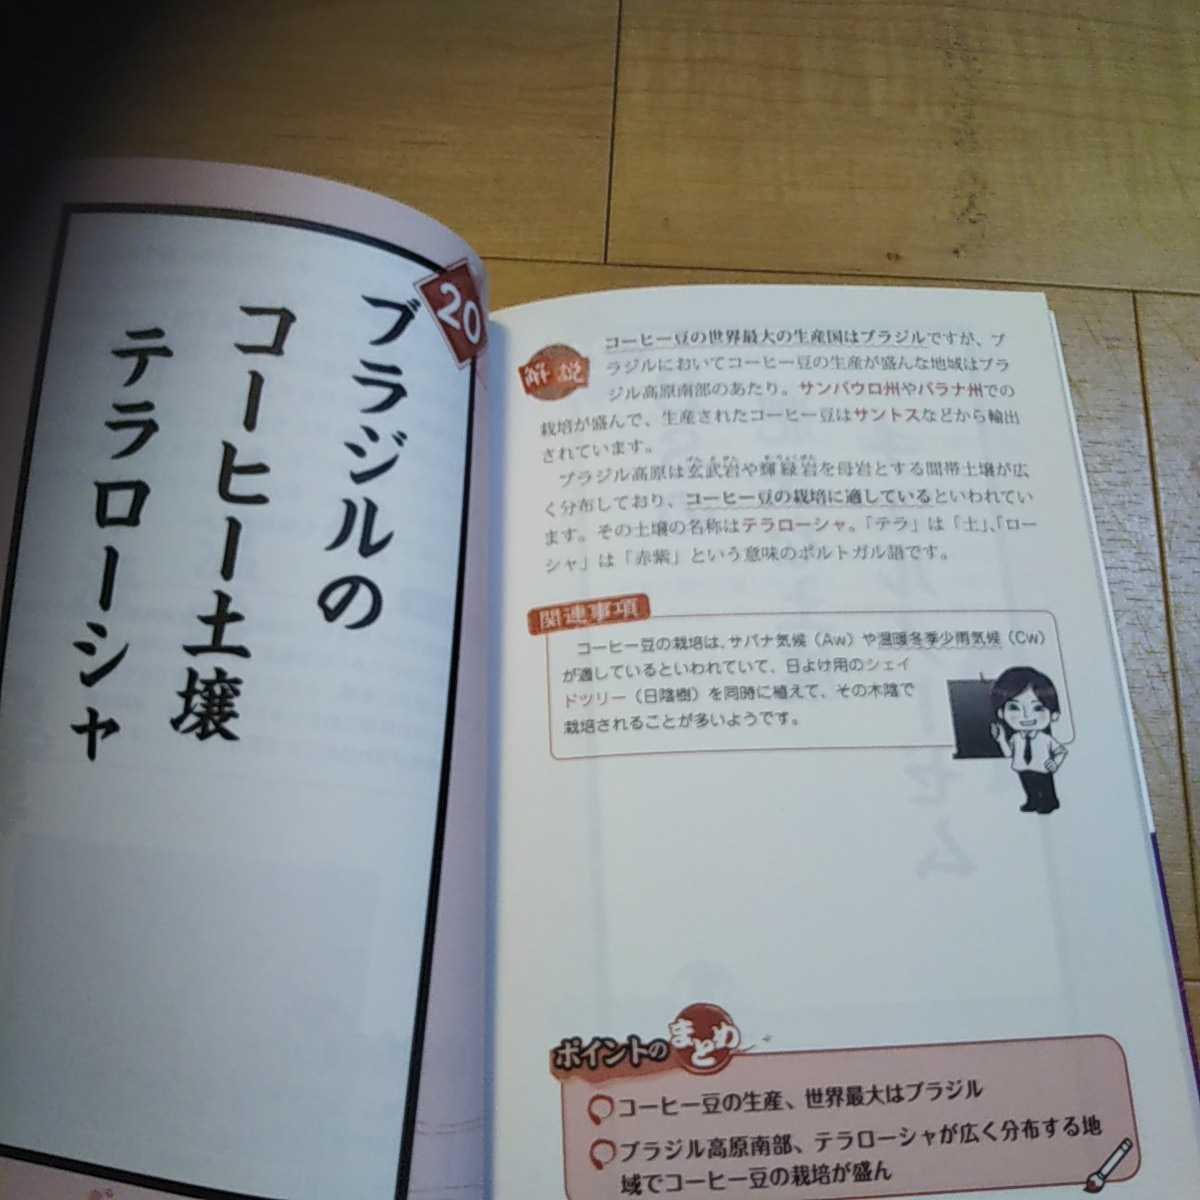 20
ブラジルの
コーヒー土壌
テラローシャ
解説
コーヒー豆の世界最大の生産国はブラジルですが、ブ
ラジルにおいてコーヒー豆の生産が盛んな地域はブラ
ジル高原南部のあたり。サンパウロ州やパラナ州での
栽培が盛んで、生産されたコーヒー豆はサントスなどから輸出
されています。
ブラジル高原は玄武岩や輝緑岩を母岩とする間帯土壌が広
く分布しており、コーヒー豆の栽培に適しているといわれてい
ます。その土壌の名称はテラローシャ。「テラ」は「土」、「ロー
シャ」は「赤紫」という意味のポルトガル語です。
関連事項
コーヒー豆の栽培は、サバナ気候（Aw）や温暖冬季少雨気候（Cw）
が適しているといわれていて、日よけ用のシェイ
ドツリー（日陰樹）を同時に植えて、その木陰で
栽培されることが多いようです。
ポイントのまとめ
コーヒー豆の生産、世界最大はブラジル
ブラジル高原南部、テラローシャが広く分布する地
域でコーヒー豆の栽培が盛ん